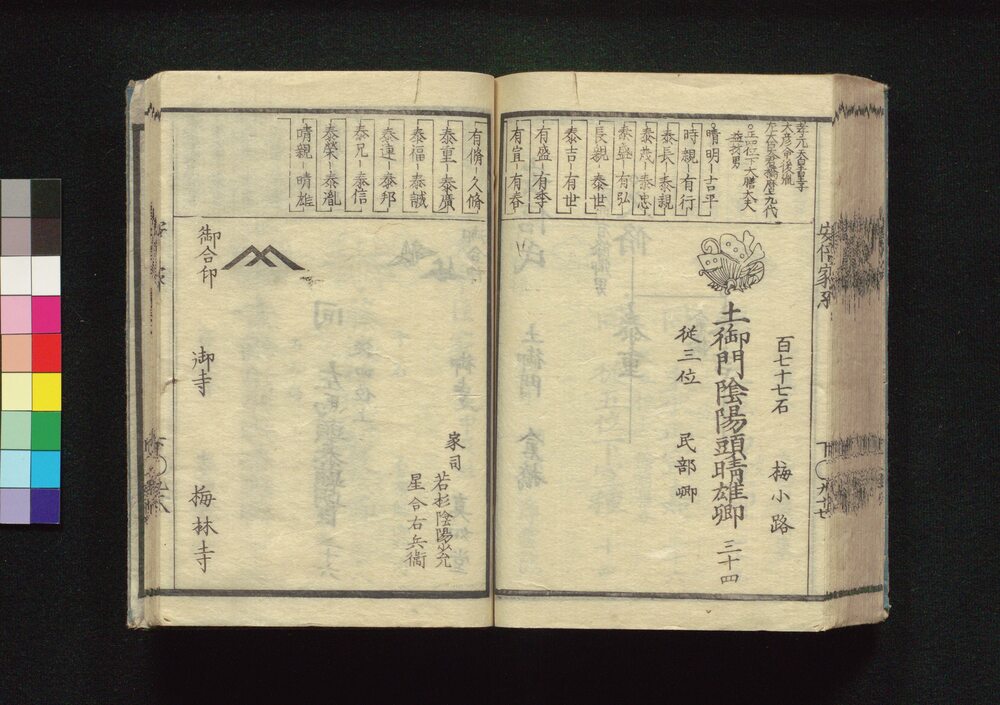 孝元天皇皇子
大彦命後胤
左大臣倉橋麿九代
正四位下大膳大夫
益材男
晴明 吉平
時親 有行
泰長 泰親
泰茂 泰忠
泰盛 有弘
長親 泰世
泰吉 有世
有盛 有季
有宣 有春
百七十七石 梅小路
土御門陰陽頭晴雄卿 三十四
従三位 民部卿
安倍家系
下 九十七
有脩 久脩
泰重 泰廣
泰福 泰誠
泰連 泰邦
泰兄 泰信
泰榮 泰胤
晴親 晴雄
家司
若杉陰陽少允
星合右兵衞
御合印
御寺 梅林寺